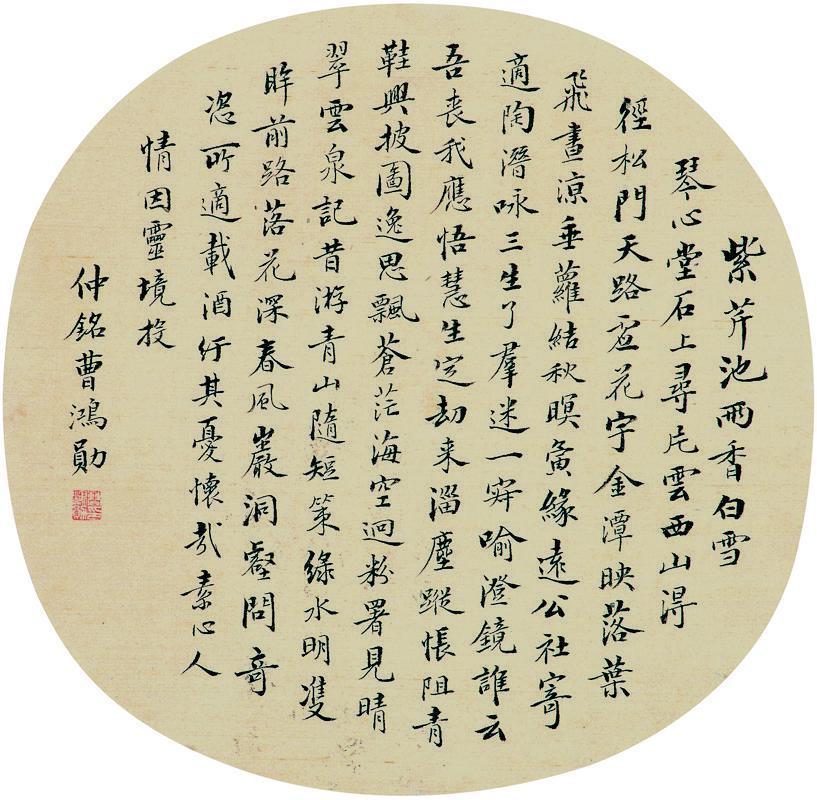 紫芹池雨香白雪
琴心堂石上尋片雲西山淂
徑松門天路逗花宇金潭映落葉
飛晝涼垂蘿結秋暝夤緣遠公社寄
適陶潛咏三生了羣迷一寐喻澄鏡誰云
吾喪我應悟慧生定劫来淄塵蹤悵阻青
鞋興披圖逸思飄蒼茫海空迥粉署見晴
翠雲泉記昔游青山隨短策綠水明雙
眸前路落花深春風巖洞壑問奇
恣所適載酒紆其憂懷哉素心人
情因靈境投
仲銘曹鴻勛